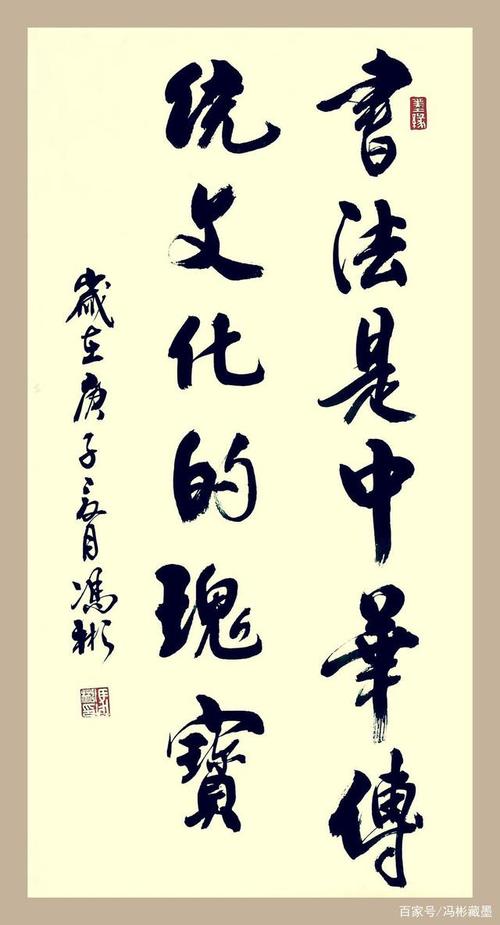 書法是中華傳
統文化的瑰寶
歲在庚子夏月馮彬
墨緣
百家号/冯彬藏墨